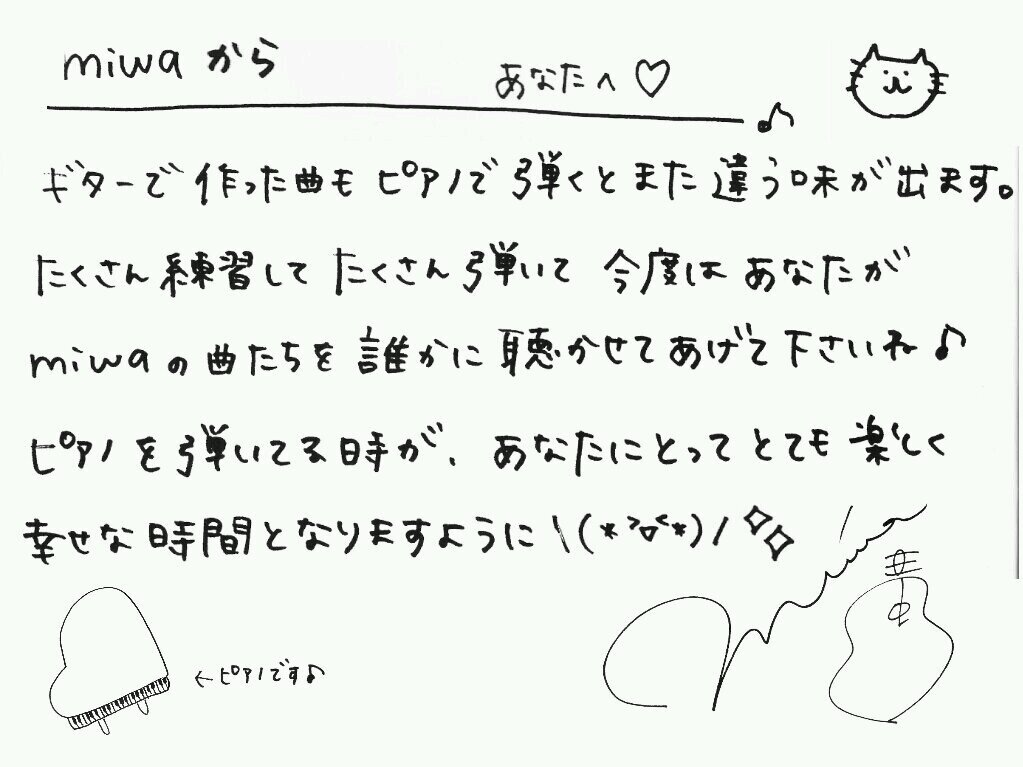 miwaから
あなたへ♡
ギターで作った曲もピアノで弾くとまた違う味が出ます。
たくさん練習してたくさん弾いて今度はあなたが
miwaの曲たちを誰かに聴かせてあげて下さいね♪
ピアノを弾いてる時が、あなたにとってとても楽しく
幸せな時間となりますように\(*>▽<*)/✧✧
←ピアノです♪